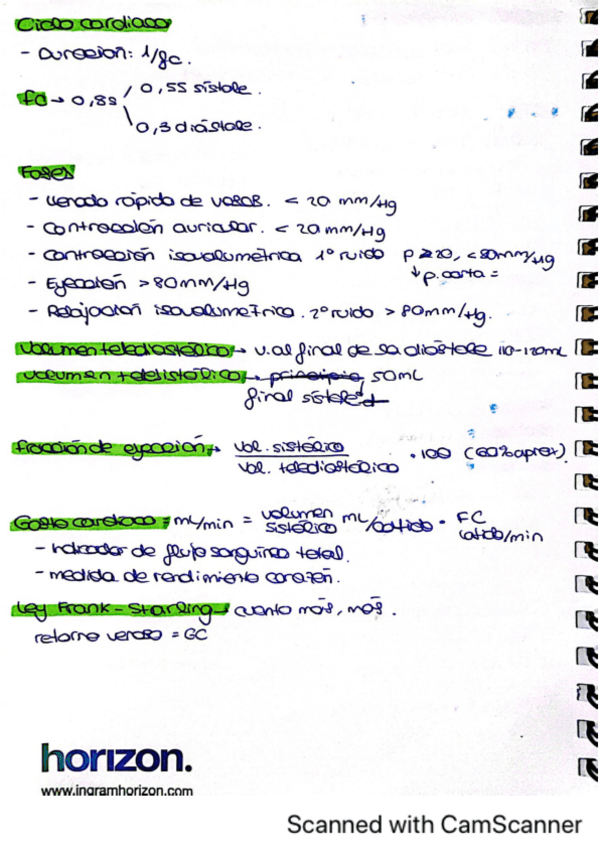 Ciclo cardiaco
- Duración: 1/fc.
fc → 0,8s / 0,5s sístole.
\ 0,3 diástole.
Fases
- Llenado rápido de vasos. < 20 mm/Hg
- Contracción auricular. < 20 mm/Hg
- Contracción isovolumétrica 1º ruido p ≥ 20, < 80 mm/Hg
↓ p. aorta =
- Eyección > 80 mm/Hg
- Relajación isovolumétrica. 2º ruido > 80 mm/Hg.
Volumen telediastólico → v. al final de sa diástole 110-120mL
volumen telesistólico → principio, 50mL
final sístole
fracción de eyección → vol. sistólico / vol. telediastólico · 100 (60% aprox).
Gasto cardiaco = mL/min = volumen sistólico mL/latido · FC latido/min
- Indicador de flujo sanguíneo total.
- medida de rendimiento corazón.
Ley Frank-Starling → cuanto más, más.
retorno venoso = GC
horizon.
www.ingramhorizon.com
Scanned with CamScanner